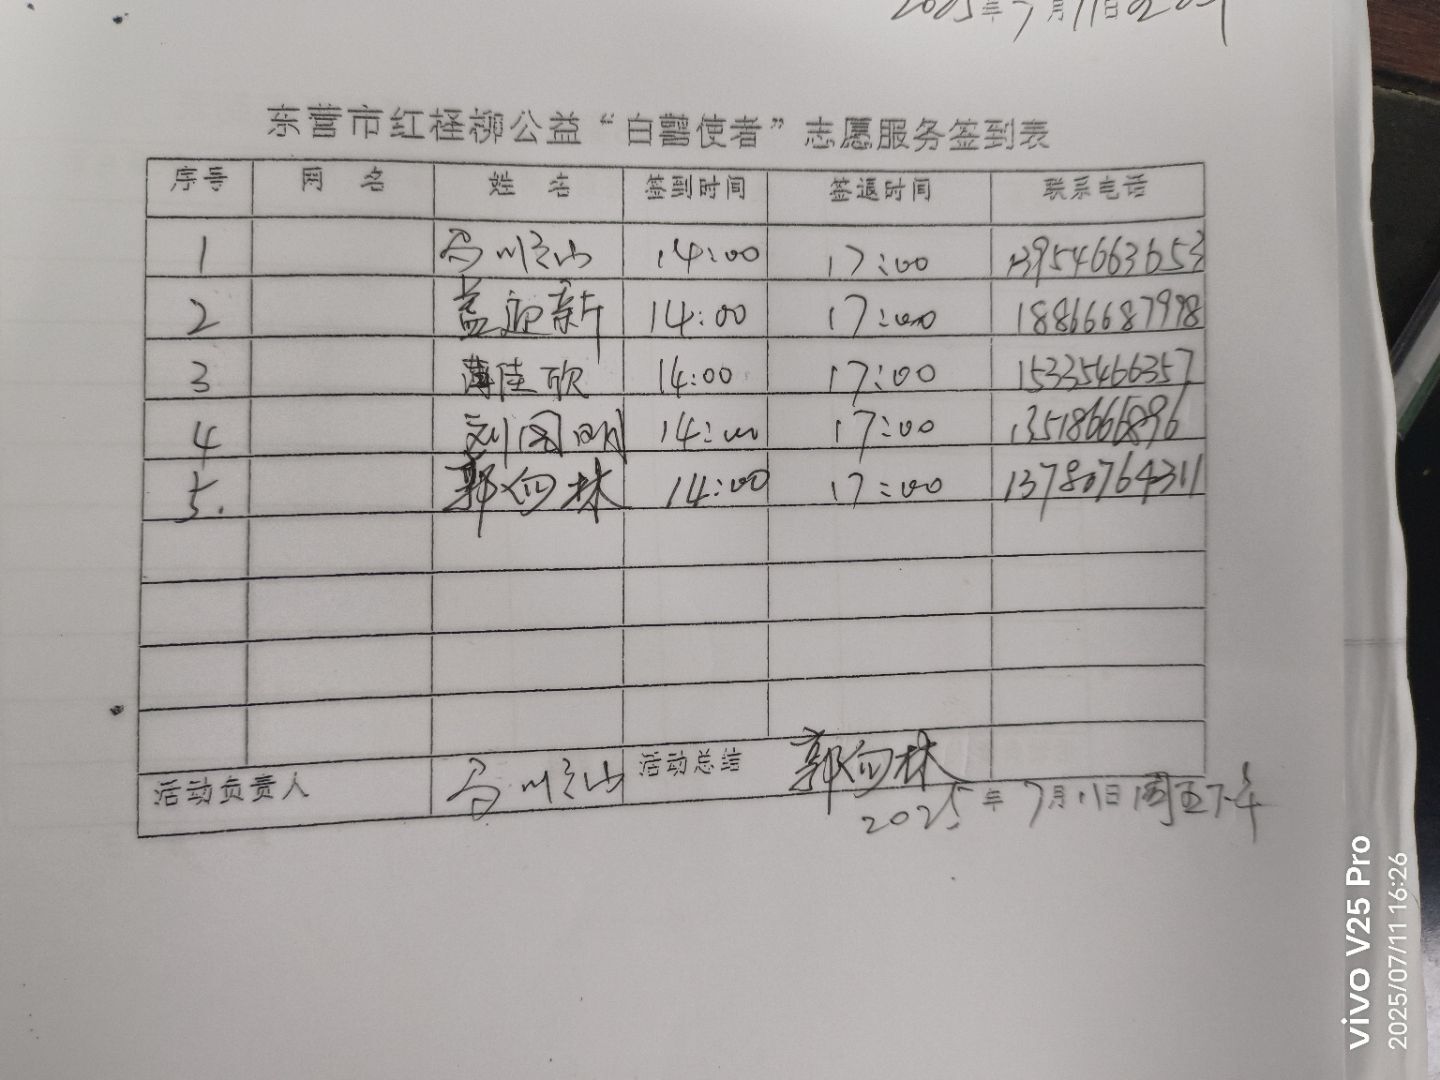 2025年7月11日
东营市红柽柳公益“白鹳使者”志愿服务签到表
序号 网 名 姓 名 签到时间 签退时间 联系电话
1 14:00 17:00 13954663653
2 盖迎新 14:00 17:00 18866687998
3 薄佳欣 14:00 17:00 15335466357
4 刘国明 14:00 17:00 13518666896
5. 郭向林 14:00 17:00 13780764311
活动负责人 活动总结 郭向林
2025年7月11日周五下午
vivo V25 Pro
2025/07/11 16:26